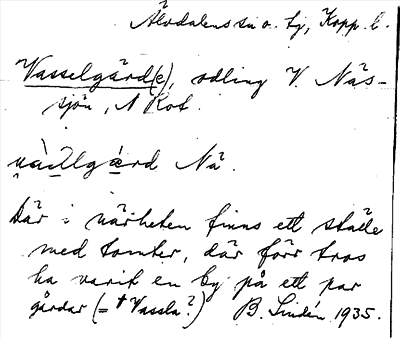 Älvdalens sn o. tg, Kopp. l.
Vasselgård(e), odling V. Näs-
sjön, N Rot.
Nä.
Där i närheten finns ett ställe
med tomter, där förr tros
ha varit en by på ett par
gårdar (= † Vassla?) B. Lindén 1935.